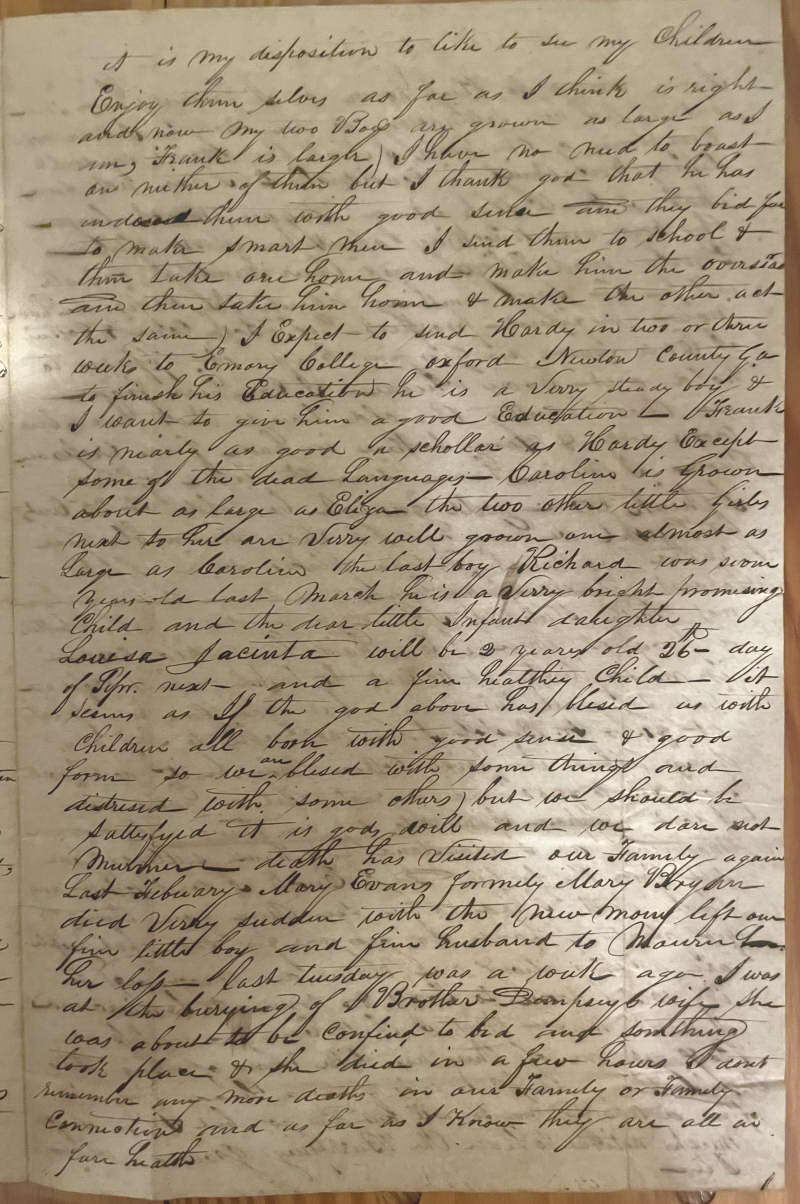 it is my disposition to like to see my Children
Enjoy them selves as far as I think is right
and now my two Boys are grown as large as I
am, Frank is larger) I have no need to boast
on neither of them but I thank god that he has
them with good sense and they bid fair
to make smart men I send them to school &
then take one home and make him the overseer
and then take him home & make the other act
the same) I Expect to send Hardy in two or three
weeks to Emory College oxford Newton County Ga
to finish his Education he is a Verry steady boy &
I want to give him a good Education – Frank
is niarly as good a schollar as Hardy Except
some of the dead Languages – Caroline is Grown
about as large as Eliza the two other little Girls
next to her are Verry well grown one almost as
Large as Caroline the last boy Richard was seven
years old last March he is a Verry bright promising
Child and the dear little Infant daughter
Louisa Jacinta will be 2 years old 26th day
of next – and a fine healthy Child – it
seems as If the god above has blesed us with
Children all born with good sense & good
form so we are blesed with some things and
distresed with some others) but we should be
sattesfyed it is gods will and we dare not
Murmer – death has Visited our Family again
Last Febuary Mary Evans formely Mary Bryan
died Verry sudden with the left one
fine little boy and fine husband to Mourn
her loss – last tuesday was a week ago I was
at the burying of Brother Dempseys wife she
was about to be Confined to bed and something
took place & she died in a few hours I dont
remember any more deaths in our Family or Family
Connection and as far as I Know they are all in
fare health